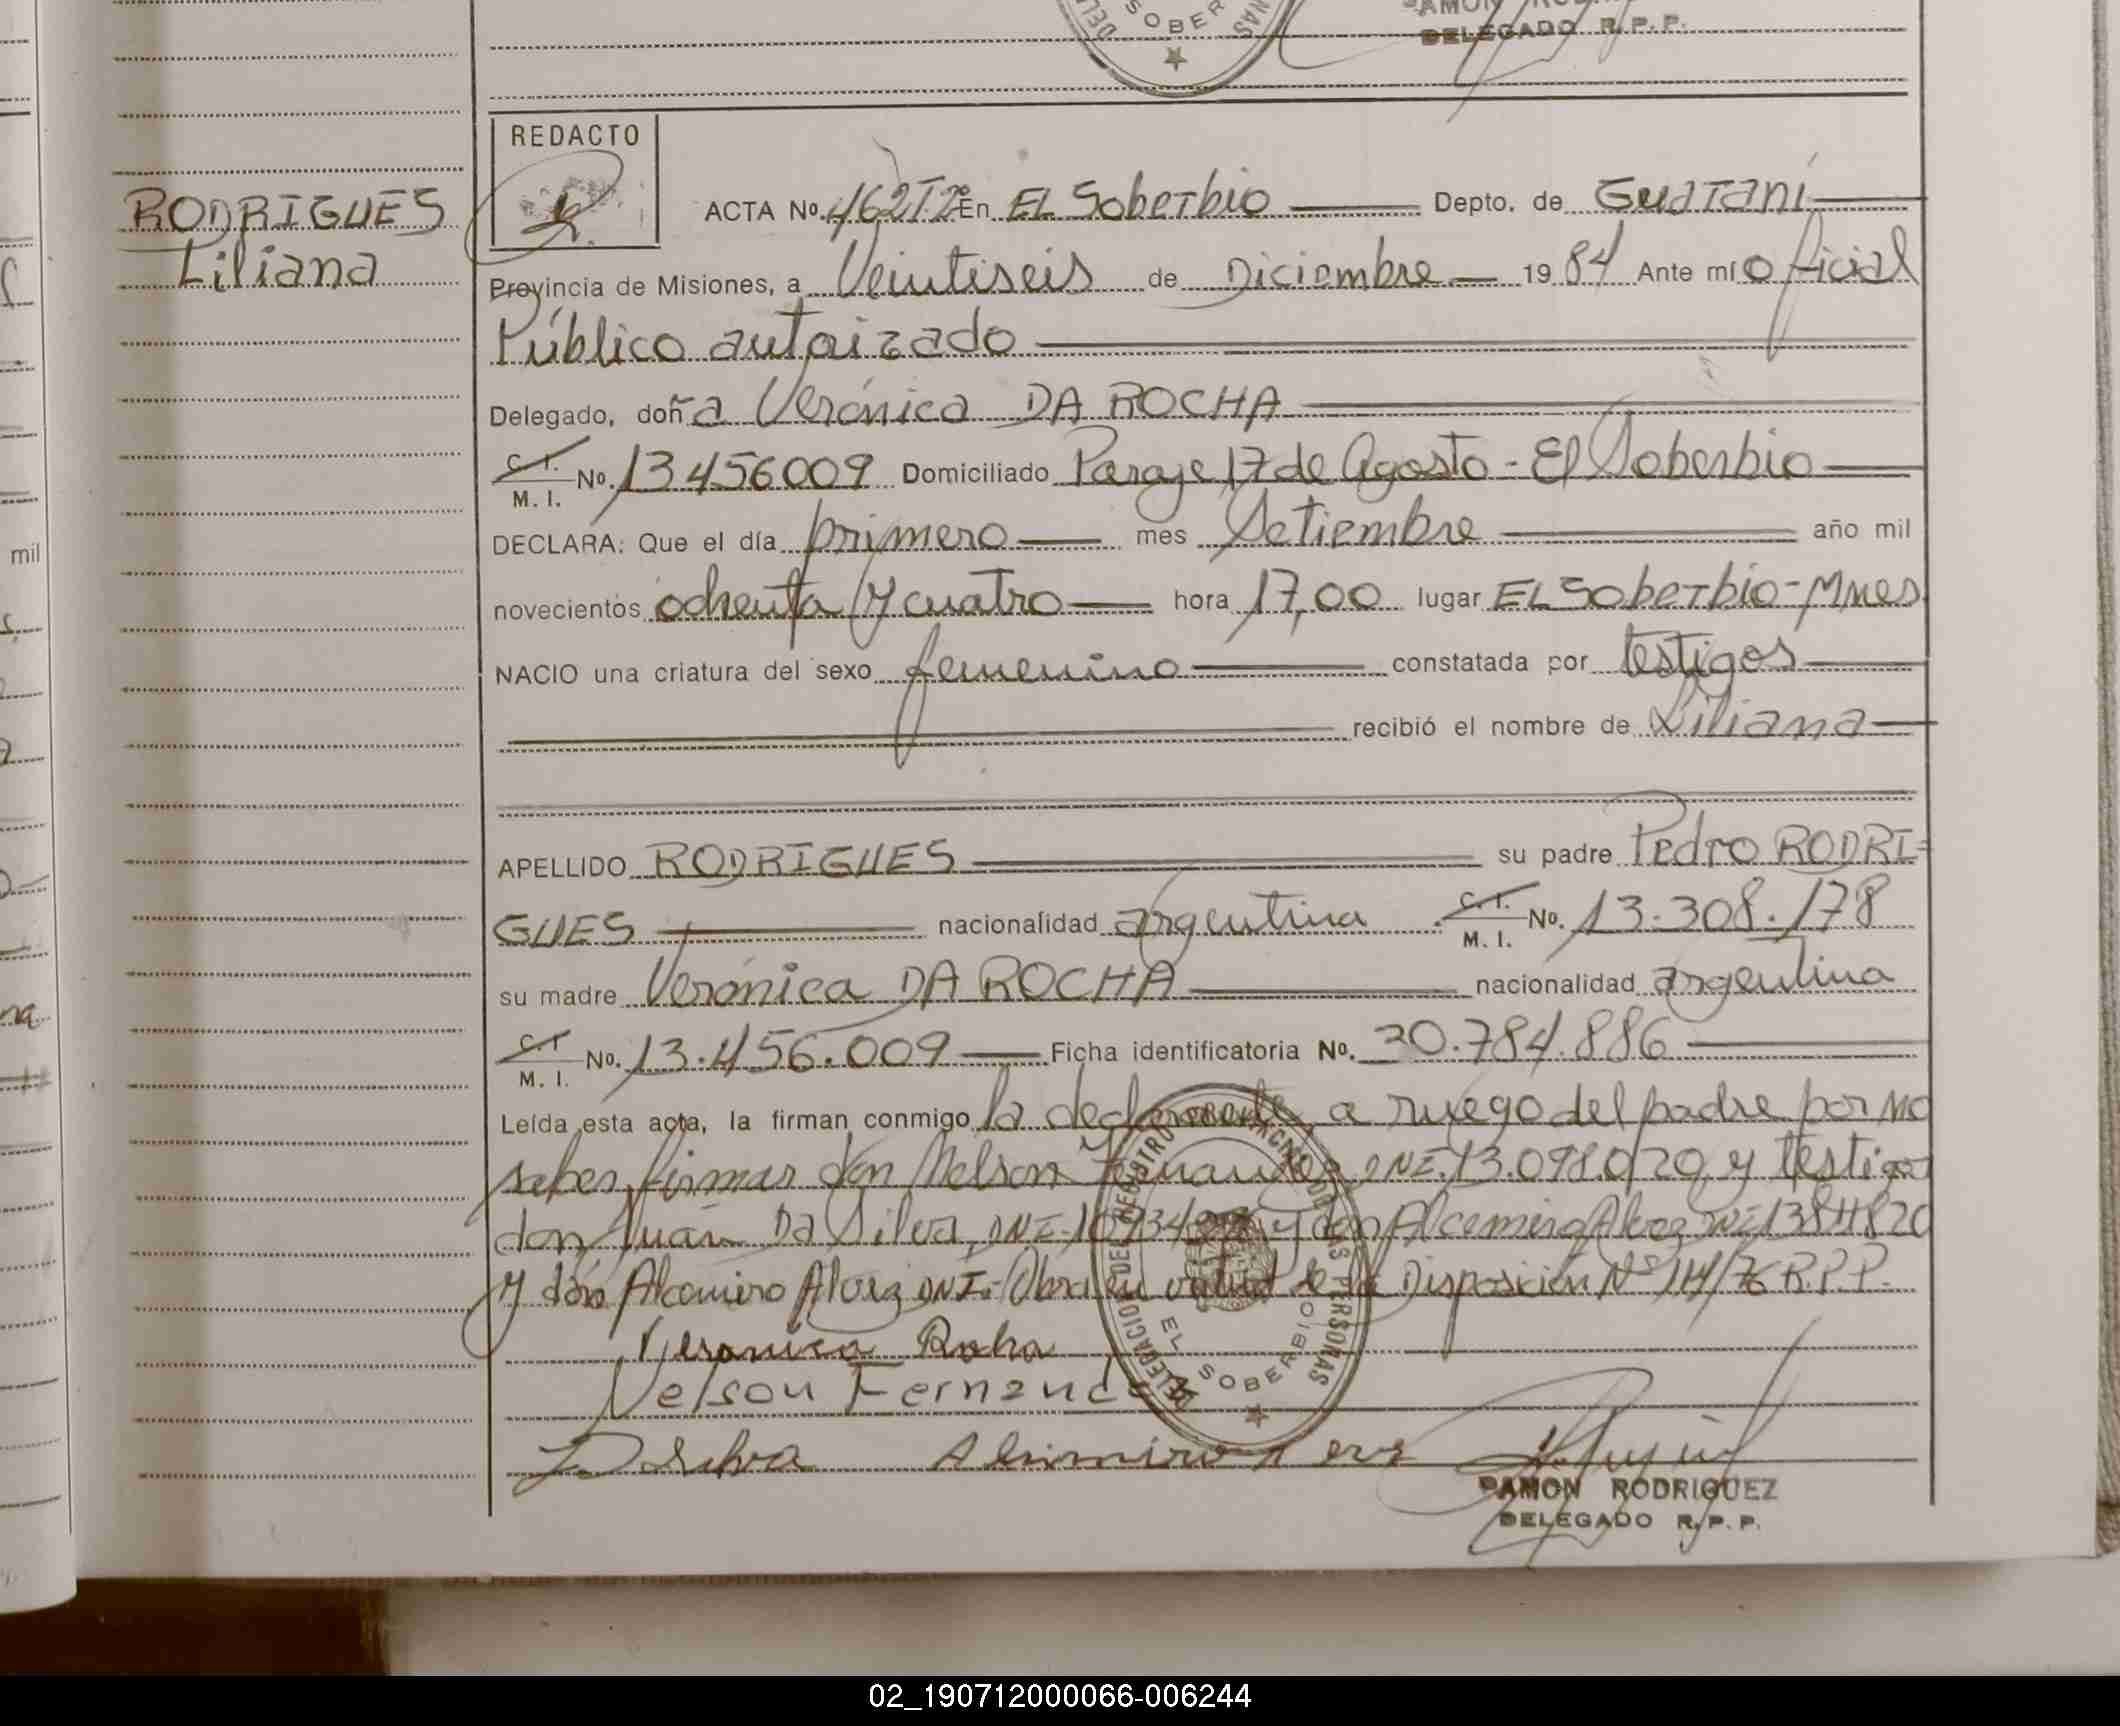 RAMON RODRI
DELEGADO R.P.P.
SOBER
REDACTO
RODRIGUES
Liliana
ACTA No. 462T2º En EL Soberbio Depto. de Guaraní
Provincia de Misiones, a Veintiseis de Diciembre 1984 Ante mí oficial
Público autorizado
Delegado, doña Verónica DA ROCHA
C. I. M. I. No. 13456009 Domiciliado Paraje 17 de Agosto - El Soberbio
DECLARA: Que el día primero mes Setiembre año mil
novecientos ochenta y cuatro hora 17,00 lugar EL Soberbio - Mnes
NACIO una criatura del sexo femenino constatada por testigos
recibió el nombre de Liliana
APELLIDO RODRIGUES su padre Pedro RODRI=
GUES nacionalidad argentina C. I. M. I. No. 13.308.178
su madre Verónica DA ROCHA nacionalidad argentina
C. I. M. I. No. 13.456.009 Ficha identificatoria No. 30.784.886
Leída esta acta, la firman conmigo la declarante, a ruego del padre por no
saber firmar don Nelson Fernandez DNI. 13.098.020 y testigos
don Juan Da Silva, DNI. y don Alcemiro Alvez DNI
y don Alcemiro Alvez DNI.- Obra en virtud de la Disposición Nº 114/76 R.P.P.
Veronica Roha
Nelson Fernandez
DELEGACIO DEL REGISTRO DE LAS PERSONAS
EL SOBERBIO
D Silva
RAMON RODRIGUEZ
DELEGADO R.P.P.
mil
02_190712000066-006244